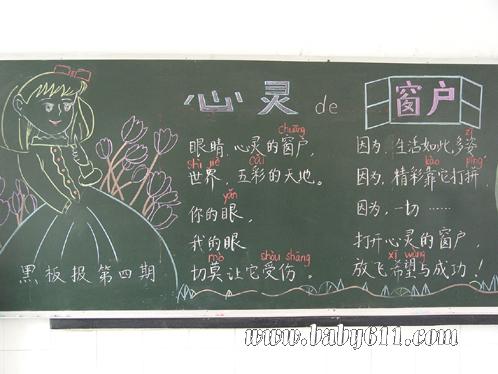 心灵 de 窗户
chuāng
眼睛,心灵的窗户,
shì jiè cǎi
世界,五彩的天地。
yǎn
你的眼,
我的眼
mò shòu shāng
切莫让它受伤。
zī
因为,生活如此多姿
kào pīng
因为,精彩靠它打拼,
因为,一切……
打开心灵的窗户,
xī wàng
放飞希望与成功!
黑板报第四期
www.baby611.com